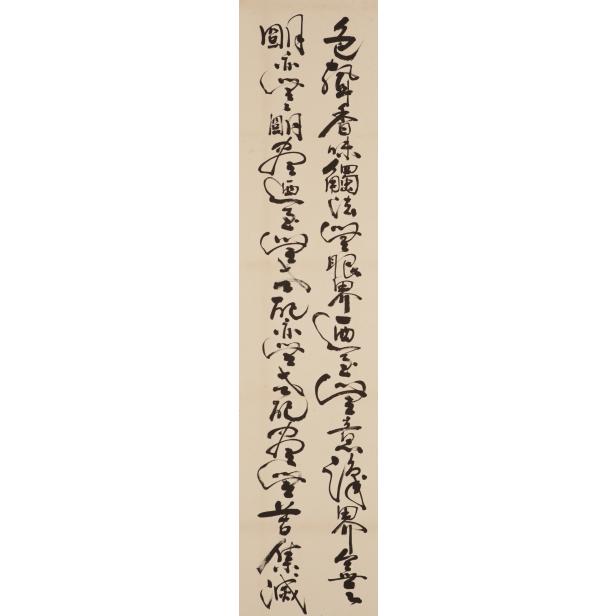 色聲香味觸法無眼界迺至無意識界無々
明亦無々明盡迺至無老死亦無老死盡無苦集滅